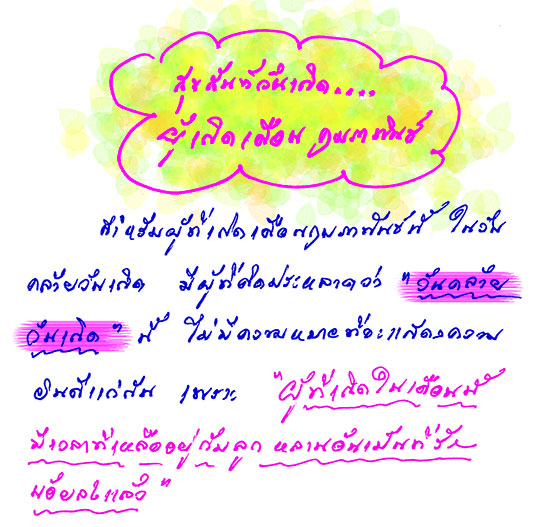 สุขสันต์วันเกิด....
ผู้เกิดเดือน กุมภาพันธ์
สำหรับผู้ที่เกิดเดือนกุมภาพันธ์นี้ ในวัน
คล้ายวันเกิด มีผู้ที่คิดประหลาดว่า "วันคล้าย
วันเกิด" นี้ ไม่มีความหมายที่จะแสดงความ
ยินดีแก่กัน เพราะ "ผู้ที่เกิดในเดือนนี้
มีเวลาที่เหลืออยู่กับลูก หลานอันเป็นที่รัก
น้อยลงแล้ว"